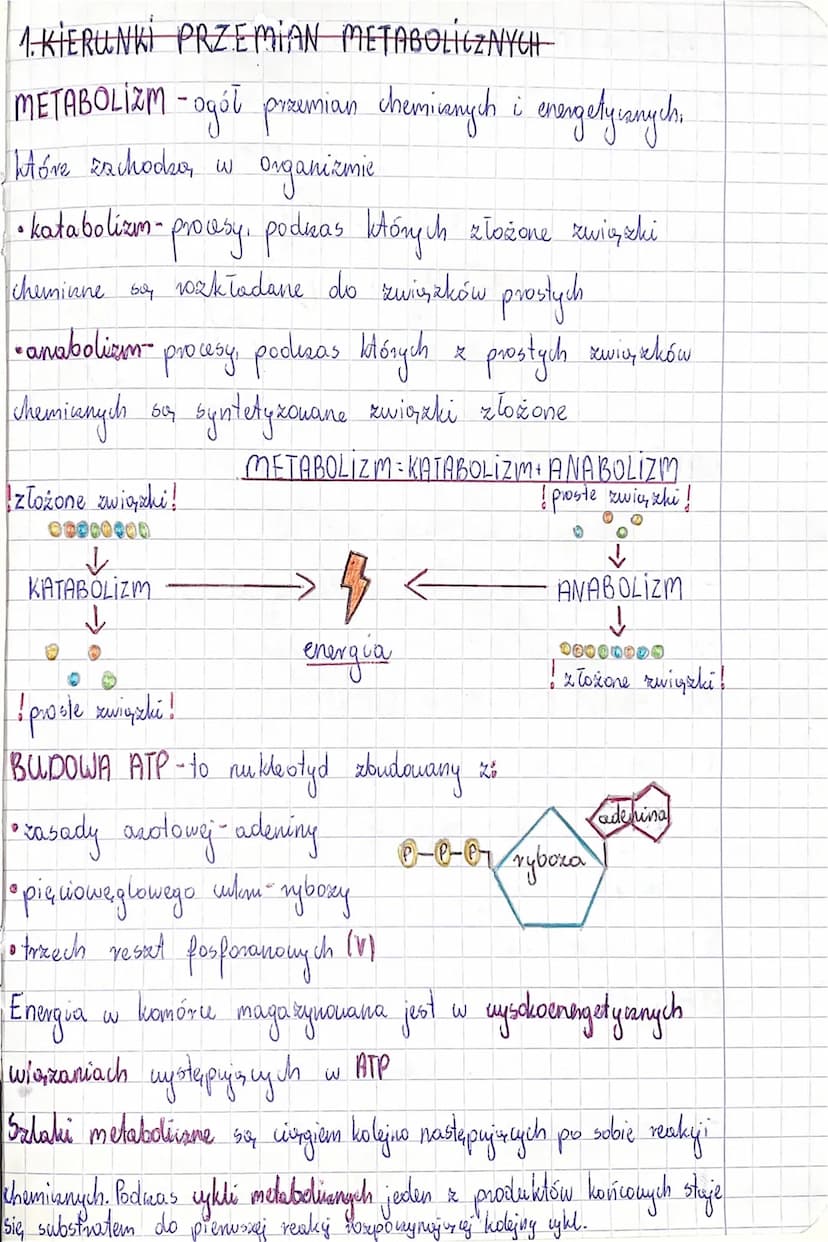 1. KIERUNKI PRZEMIAN METABOLICZNYCH
METABOLIZM - ogół przemian chemicznych i energetycznych,
które zachodzą w organizmie
• katabolizm - procesy, podczas których złożone związki
chemiczne są rozkładane do związków prostych
• anabolizm - procesy, podczas których z prostych związków
chemicznych są syntetyzowane związki złożone
METABOLIZM = KATABOLIZM + ANABOLIZM
! złożone związki! ! proste związki!
KATABOLIZM ANABOLIZM
energia
! złożone związki!
! proste związki!
BUDOWA ATP - to nukleotyd zbudowany z:
• zasady azotowej - adeniny
adenina
P-P-P ryboza
• pięciowęglowego cukru - rybozy
• trzech reszt fosforanowych (V)
Energia w komórce magazynowana jest w wysokoenergetycznych
wiązaniach występujących w ATP
Szlaki metaboliczne są ciągiem kolejno następujących po sobie reakcji
chemicznych. Podczas cykli metabolicznych jeden z produktów końcowych staje
się substratem do pierwszej reakcji rozpoczynającej kolejny cykl.